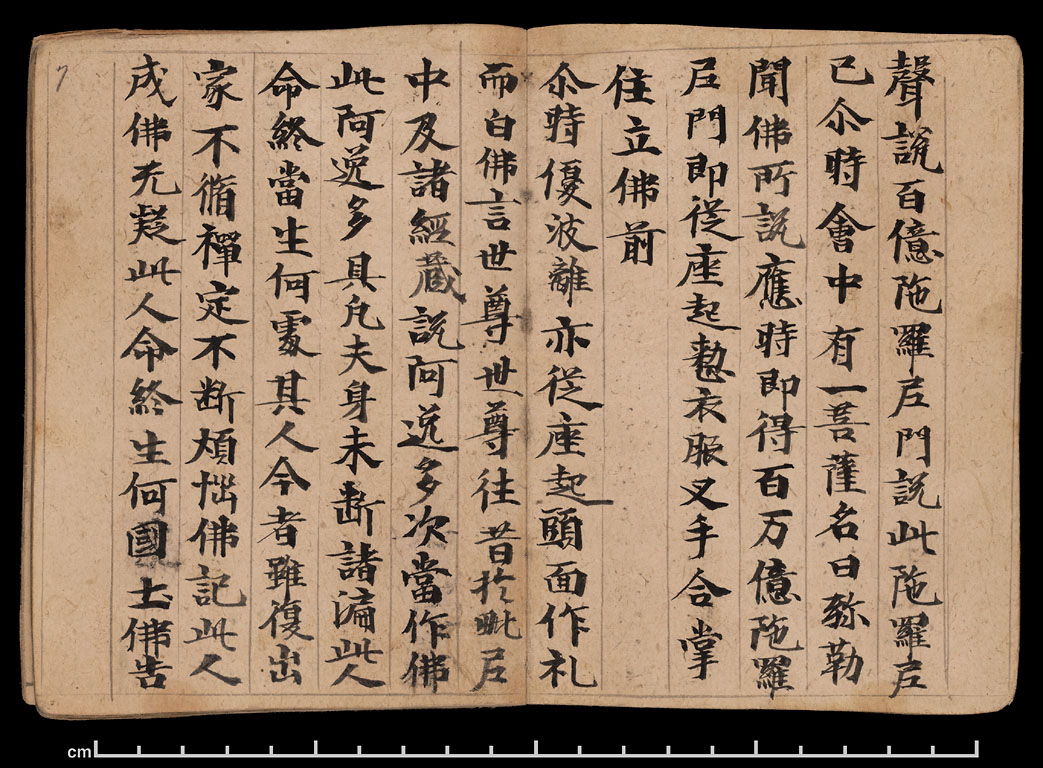 聲說百億陁羅尼門說此陁羅尼
已尒時會中有一菩薩名曰弥勒
聞佛所說應時即得百万億陁羅
尼門即從座起整衣服叉手合掌
住立佛前
尒時優波離亦從座起頭面作礼
而白佛言世尊世尊往昔於毗尼
中及諸經藏說阿逸多次當作佛
此阿逸多具凡夫身未断諸漏此人
命終當生何處其人今者雖復出
家不循禪定不断煩惱佛記此人
成佛无疑此人命終生何國土佛告
7
cm